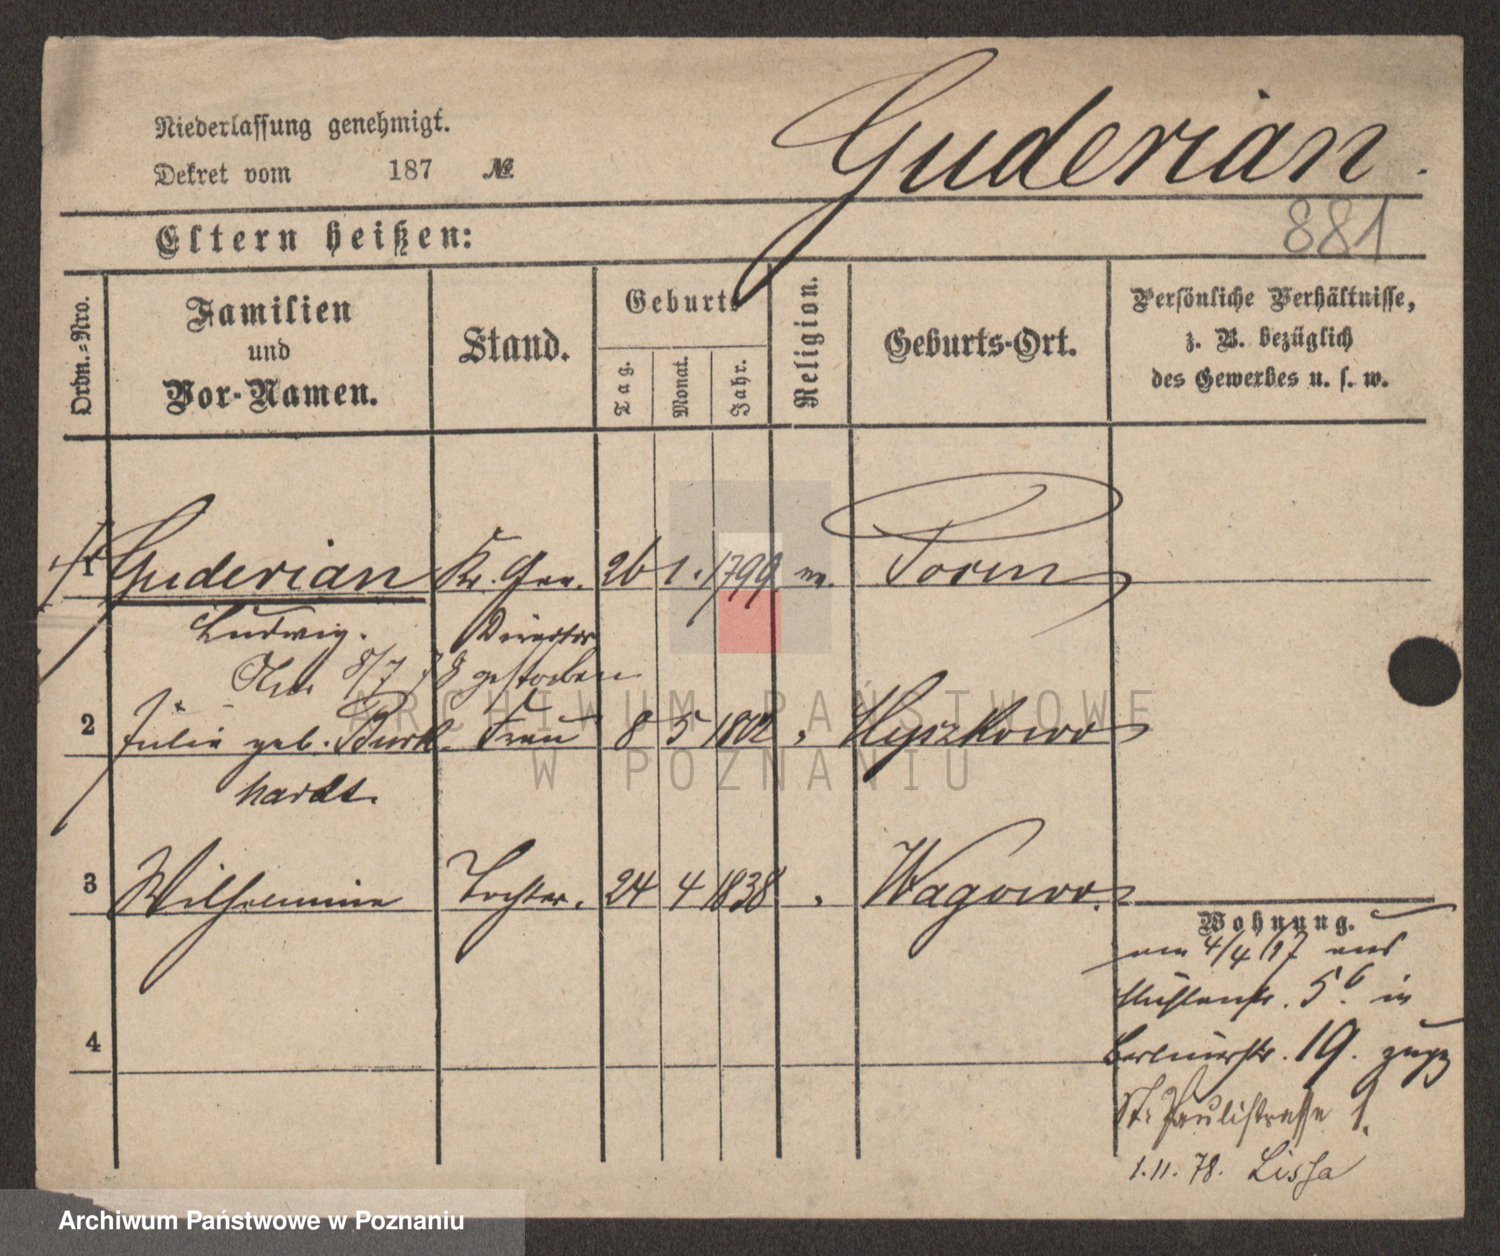 Niederlassung genehmigt.
Dekret vom 187 №
Guderian.
881
Eltern heißen:
Ordn.-Nro.
Familien
und
Vor-Namen.
Stand.
Geburts
Tag.
Monat.
Jahr.
Religion.
Geburts-Ort.
Persönliche Verhältnisse,
z. B. bezüglich
des Gewerbes u. s. w.
1 Guderian Kr. Ger. 26 1. 1799 Posen
Ludwig. Director
8/7 78 gestorben
2 Julie geb. Burk- Frau 8 5 1802
hardt.
3 Wilhelmine Tochter. 24 4 1838 Wagowo.
Wohnung.
am 4/4 77 aus
Mühlenstr. 5 b. in
Berlinerstr. 19. zugz
St. Paulistrasse 1.
1.11.78. Lissa
4
ARCHIWUM PAŃSTWOWE
W POZNANIU
Archiwum Państwowe w Poznaniu